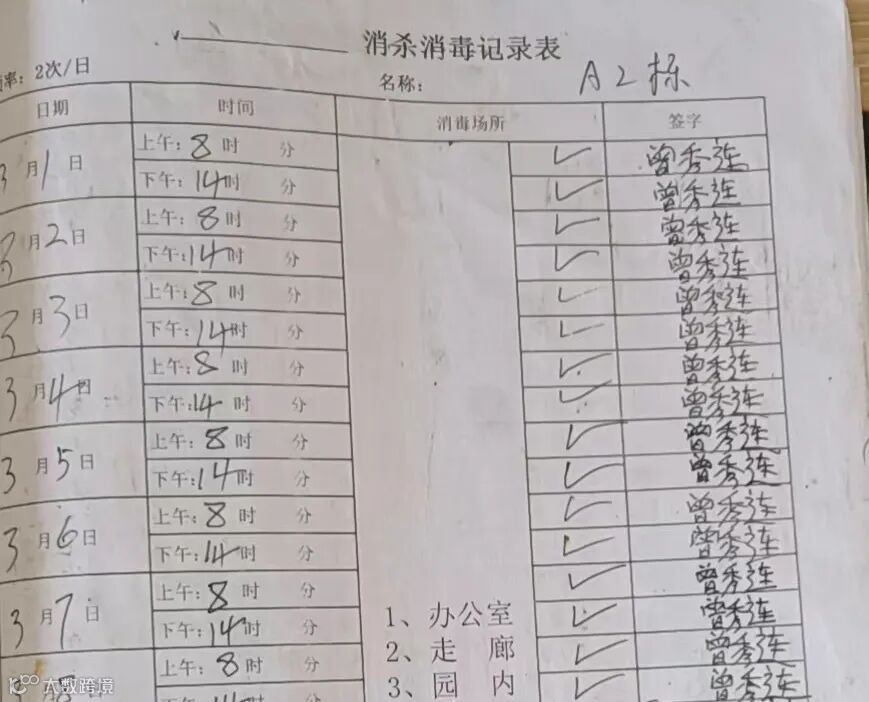 消杀消毒记录表
率：2次/日 名称： A2栋
日期 时间 消毒场所 签字
3月1日 上午：8时 分 ✓ 曾秀连
下午：14时 分 ✓ 曾秀连
3月2日 上午：8时 分 ✓ 曾秀连
下午：14时 分 ✓ 曾秀连
3月3日 上午：8时 分 ✓ 曾秀连
下午：14时 分 ✓ 曾秀连
3月4日 上午：8时 分 ✓ 曾秀连
下午：14时 分 ✓ 曾秀连
3月5日 上午：8时 分 ✓ 曾秀连
下午：14时 分 ✓ 曾秀连
3月6日 上午：8时 分 ✓ 曾秀连
下午：14时 分 ✓ 曾秀连
3月7日 上午：8时 分 ✓ 曾秀连
下午：14时 分 1、办公室 ✓ 曾秀连
上午：8时 分 2、走廊 ✓ 曾秀连
3、园内 ✓ 曾秀连
大数跨境